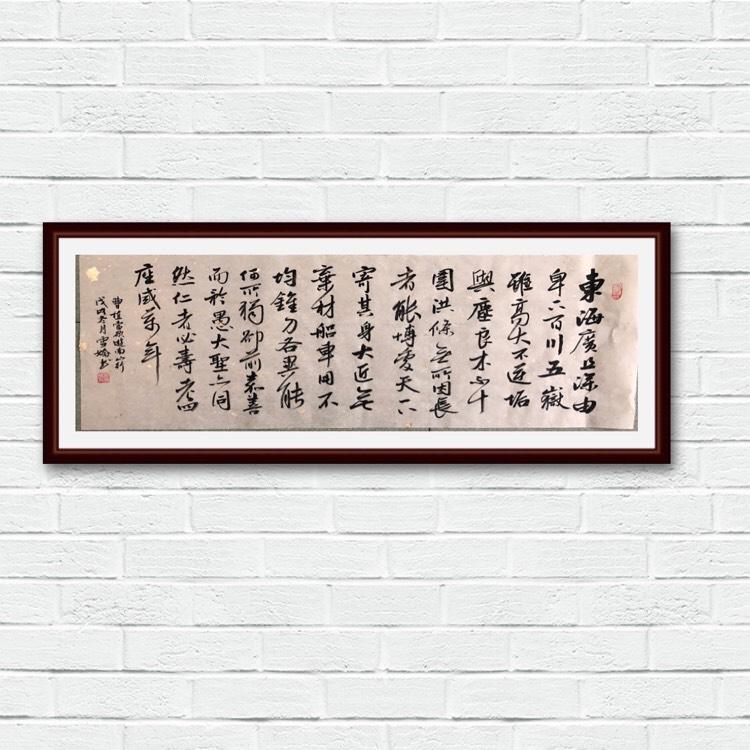 東海廣且深由
卑下百川五嶽
雖高大不逆垢
與塵良木不十
圍洪條無所因長
者能博愛天下
寄其身大匠無
棄材船車用不
均錐刀各異能
何所獨卻前嘉善
而矜愚大聖亦同
然仁者必壽考四
座咸萬年
曹植當欲遊南山行
戊戌冬月雪嬌書